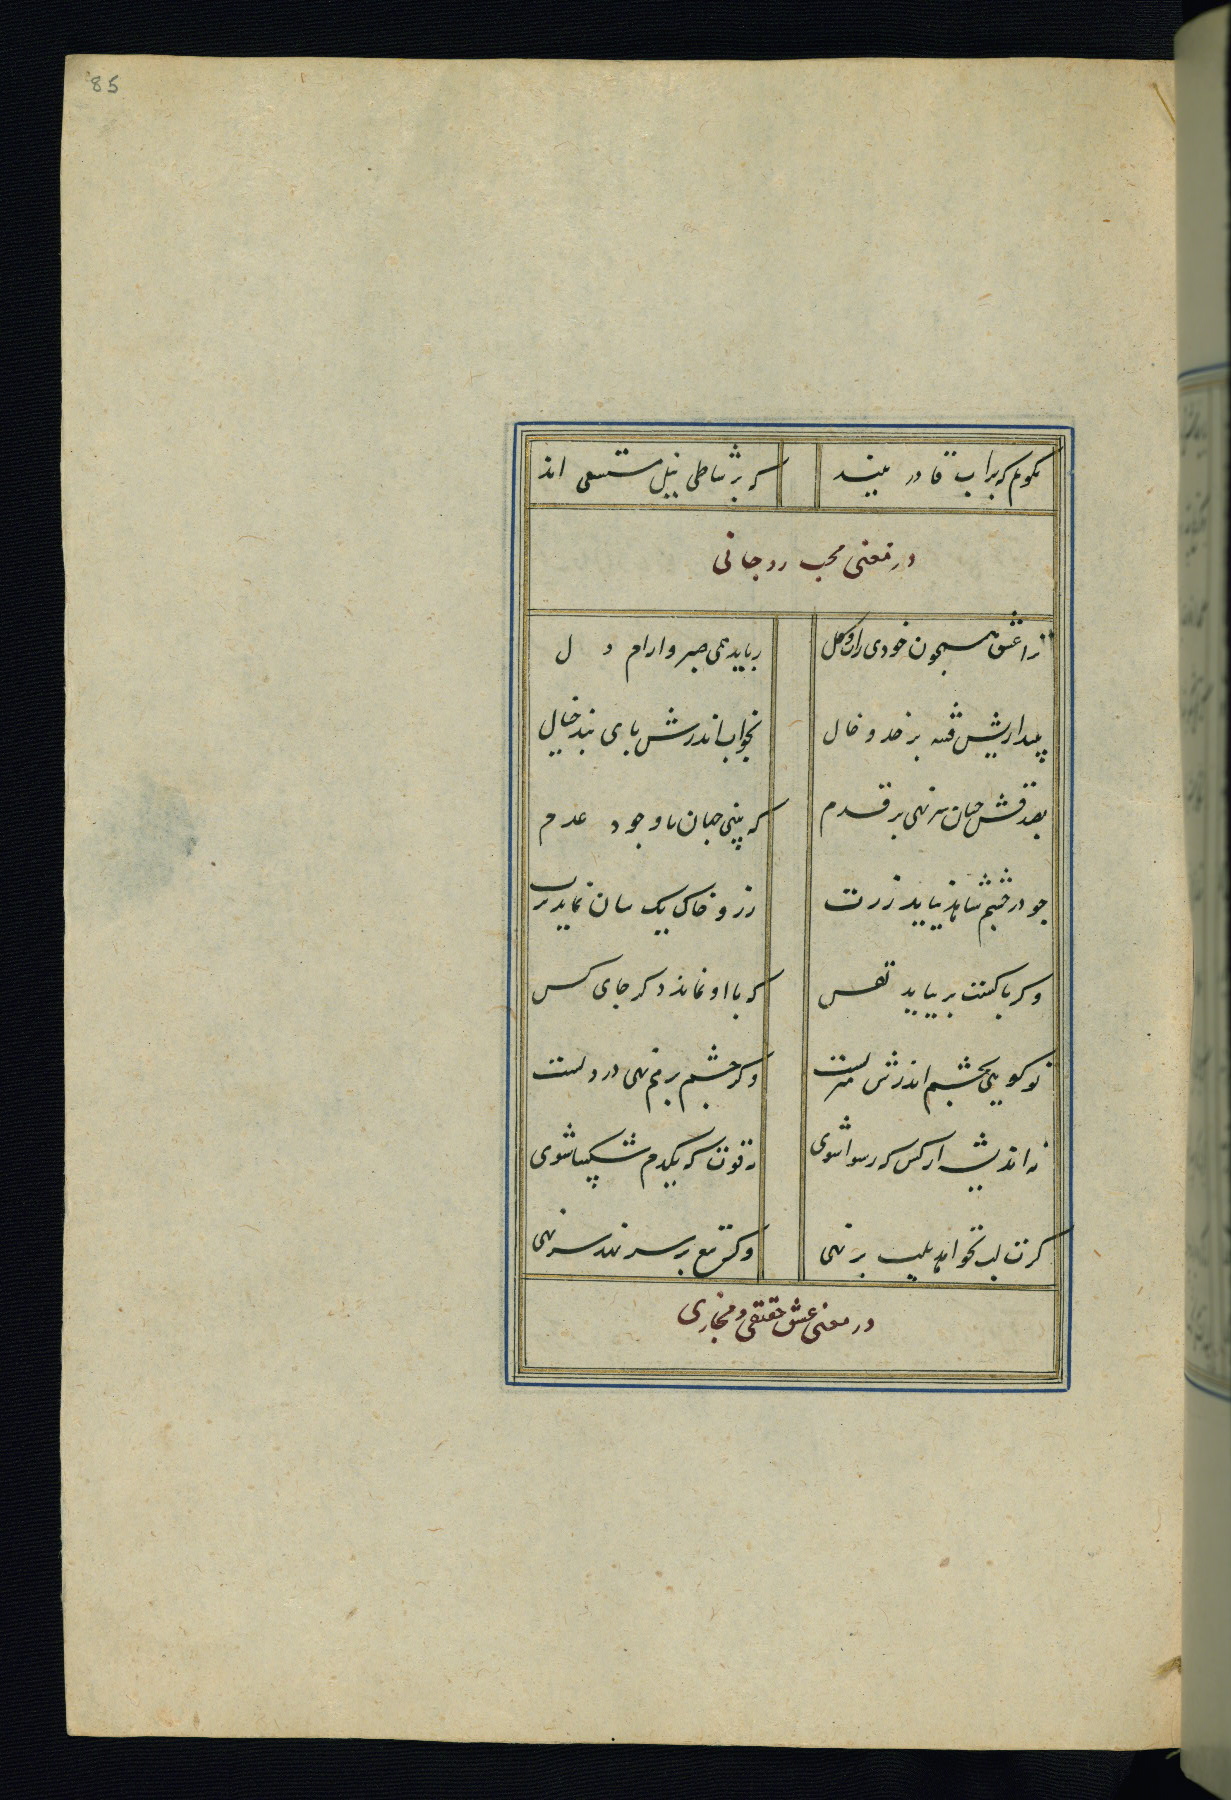 85
نگویم که بر آب قادر نیند که بر شاطی نیل مستسقی اند
در معنی محب روحانی
ترا عشق همچون خودی زاب و گل رباید همی صبر و ارام دل
به بیداریش فتنه بر خد و خال بخواب اندرش پای بند خیال
بصدقش چنان سر نهی بر قدم که بینی جهان با وجود عدم
چو در چشم شاهد نیاید زرت زر و خاک یکسان نماید برت
وکر با کست بر نیاید نفس که با او نماند دکر جای کس
تو کویی بچشم اندرش منزلست وکر چشم بر هم نهی در دلست
نه اندیشه از کس که رسوا شوی نه قوت که یکدم شکیبا شوی
کرت لب بخواهد بلب بر نهی وکر تیغ بر سر نهد سر نهی
در معنی عشق حقیقی و مجازی